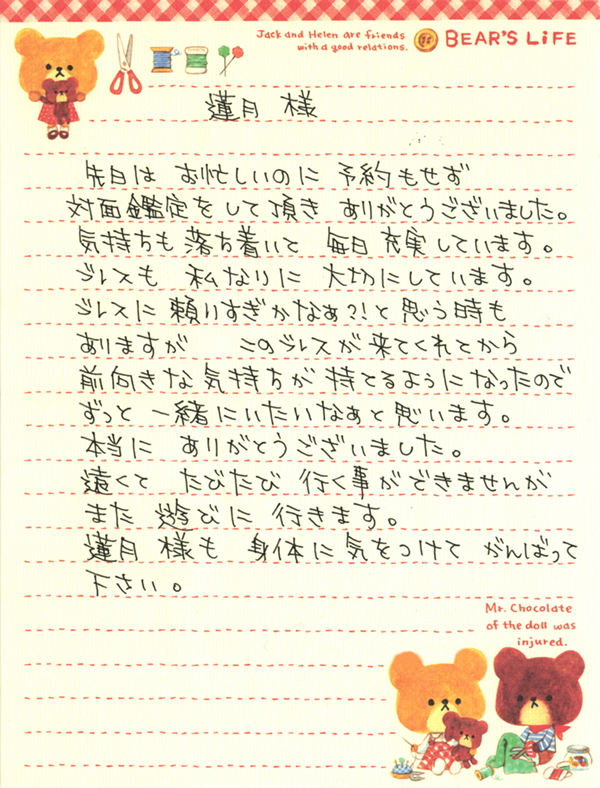 Jack and Helen are friends
with a good relations.
BEAR'S LiFE
蓮月 様
先日は お忙しいのに 予約もせず
対面鑑定をして頂き ありがとうございました。
気持ちも落ち着いて 毎日充実しています。
ブレスも 私なりに 大切にしています。
ブレスに頼りすぎかなぁ?!と思う時も
ありますが このブレスが来てくれてから
前向きな気持ちが持てるようになったので
ずっと一緒にいたいなぁと思います。
本当に ありがとうございました。
遠くて たびたび 行く事ができませんが
また 遊びに 行きます。
蓮月 様も 身体に気をつけて がんばって
下さい。
Mr. Chocolate
of the doll was
injured.